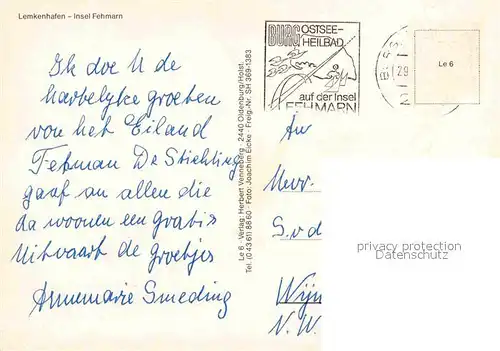 Lemkenhafen – Insel Fehmarn
Ik doe U de
harbelyke groeten
von het Eiland
Fehman De Stichting
gaaf an allen die
da woonen een gratis
Uitvaart de groetjes
Annemarie Smeding
Le 6 - Verlag: Herbert Venneberg · 2440 Oldenburg/Holst.
Tel. (0 43 61) 88 60 - Foto: Joachim Eicke - Freig.-Nr. SH 369-1383
BURG OSTSEE-
HEILBAD
auf der Insel
FEHMARN
29
Le 6
An
S.v d
privacy protection
© ansichtskarten-center
N.W.